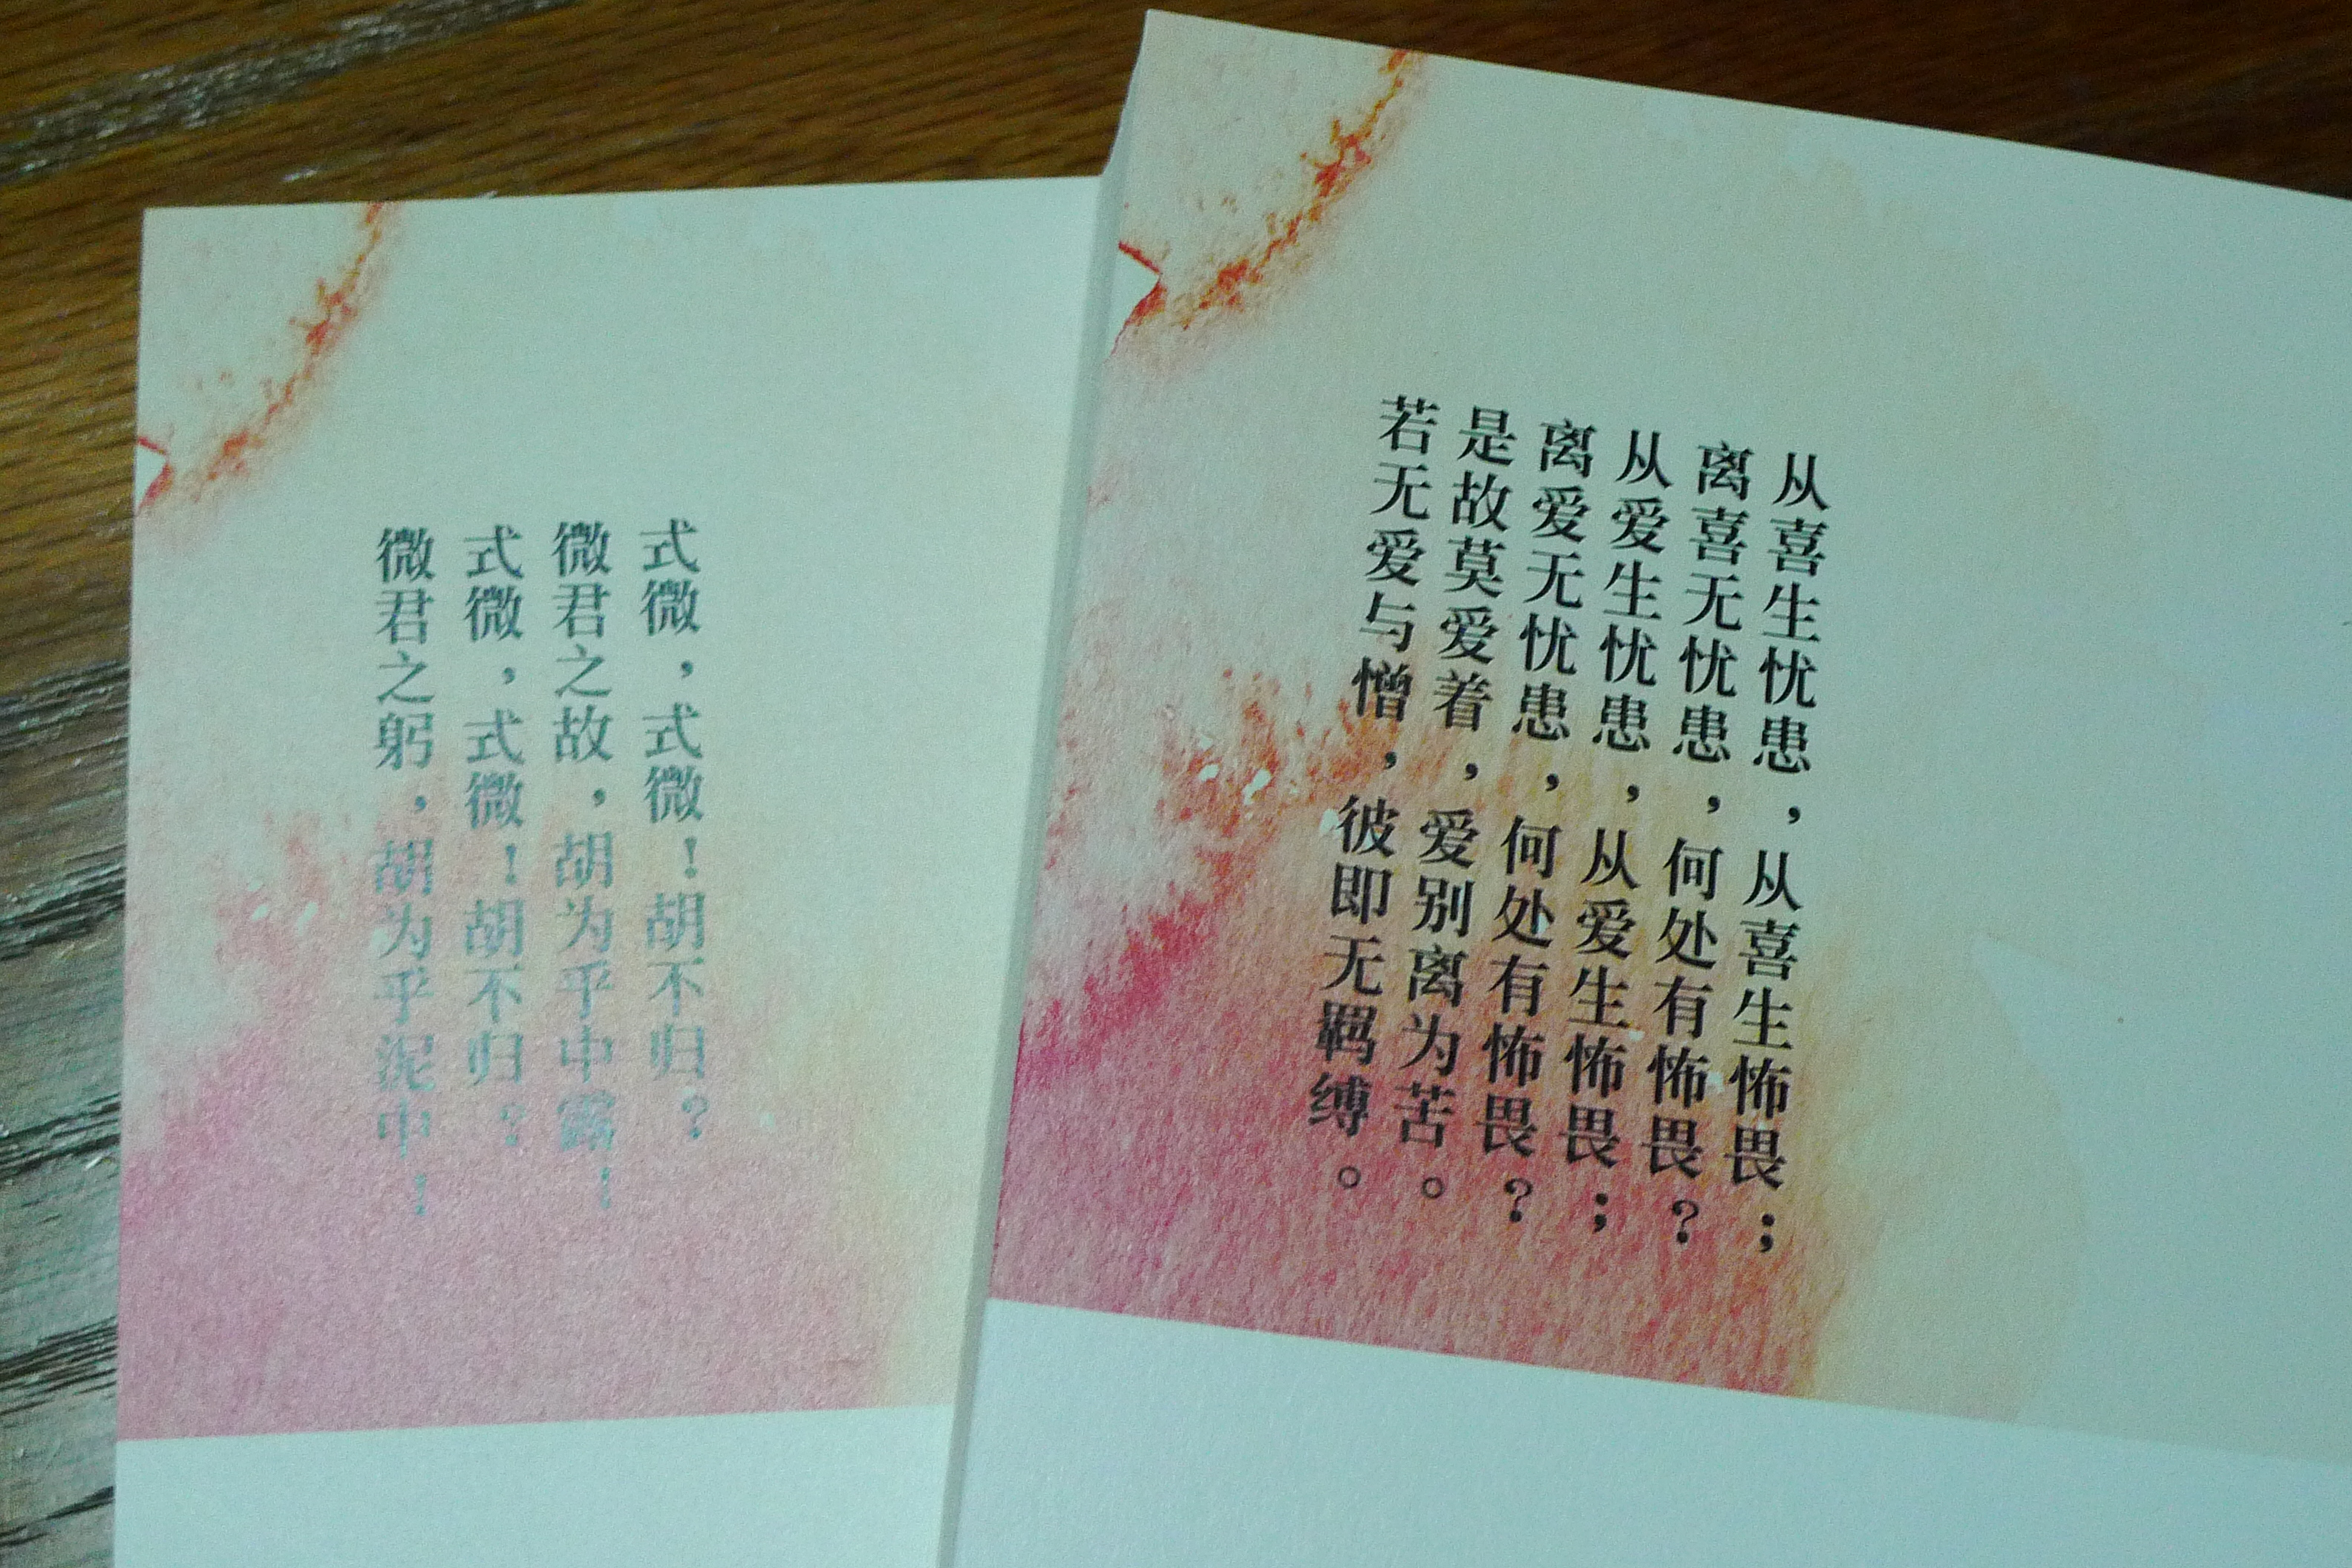 式微，式微！胡不归？
微君之故，胡为乎中露！
式微，式微！胡不归？
微君之躬，胡为乎泥中！
从喜生忧患，从喜生怖畏；
离喜无忧患，何处有怖畏？
从爱生忧患，从爱生怖畏；
离爱无忧患，何处有怖畏？
是故莫爱着，爱别离为苦。
若无爱与憎，彼即无羁缚。